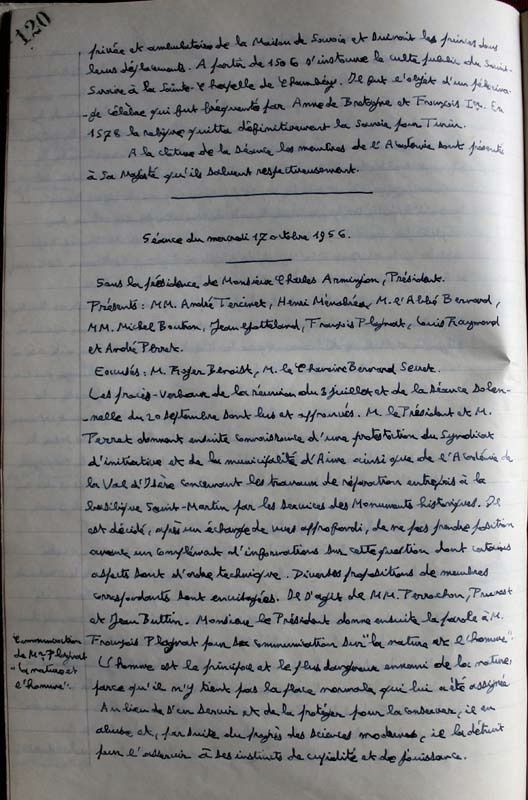 120
privée et ambulatoire de la Maison de Savoie et suivait les princes dans
leurs déplacements. A partir de 1506 s'instaure le culte public du Saint-
Suaire à la Sainte-Chapelle de Chambéry. Il fut l'objet d'un pélerina-
-ge célèbre qui fut fréquenté par Anne de Bretagne et François Ier. En
1578 la relique quitta définitivement la Savoie pour Turin.
A la clôture de la séance les membres de l'Académie sont présentés
à Sa Majesté qu'ils saluent respectueusement.
Séance du mercredi 17 octobre 1956.
Sous la présidence de Monsieur Charles Arminjon, Président.
Présents : MM. André Tercinet, Henri Ménabréa, M. l'Abbé Bernard,
MM. Michel Boutron, Jean Gatteland, François Plagnat, Louis Raymond
et André Perret.
Excusés : M. Roger Benoist, M. le Chanoine Bernard Secret.
Les procès-verbaux de la réunion du 3 juillet et de la séance solen-
-nelle du 20 septembre sont lus et approuvés. M. le Président et M.
Perret donnent ensuite connaissance d'une protestation du Syndicat
d'initiative et de la municipalité d'Aime ainsi que de l'Académie de
la Val d'Isère concernant les travaux de réparation entrepris à la
basilique Saint-Martin par les services des Monuments historiques. Il
est décidé, après un échange de vues approfondi, de ne pas prendre position
avant un complément d'informations sur cette question dont certains
aspects sont d'ordre technique. Diverses propositions de membres
correspondants sont envisagées. Il s'agit de MM. Perrochon,
et Jean Buttin. Monsieur le Président donne ensuite la parole à M.
François Plagnat pour sa communication sur "la nature et l'homme".
Communication
de Mr Plagnat
"la nature et
l'homme".
L'homme est le principal et le plus dangereux ennemi de la nature,
parce qu'il n'y tient pas la place normale qui lui a été assignée
Au lieu de s'en servir et de la protéger pour la conserver, il en
abuse et, par suite du progrès des sciences modernes, il la détruit
pour l'asservir à ses instincts de cupidité et de jouissance.